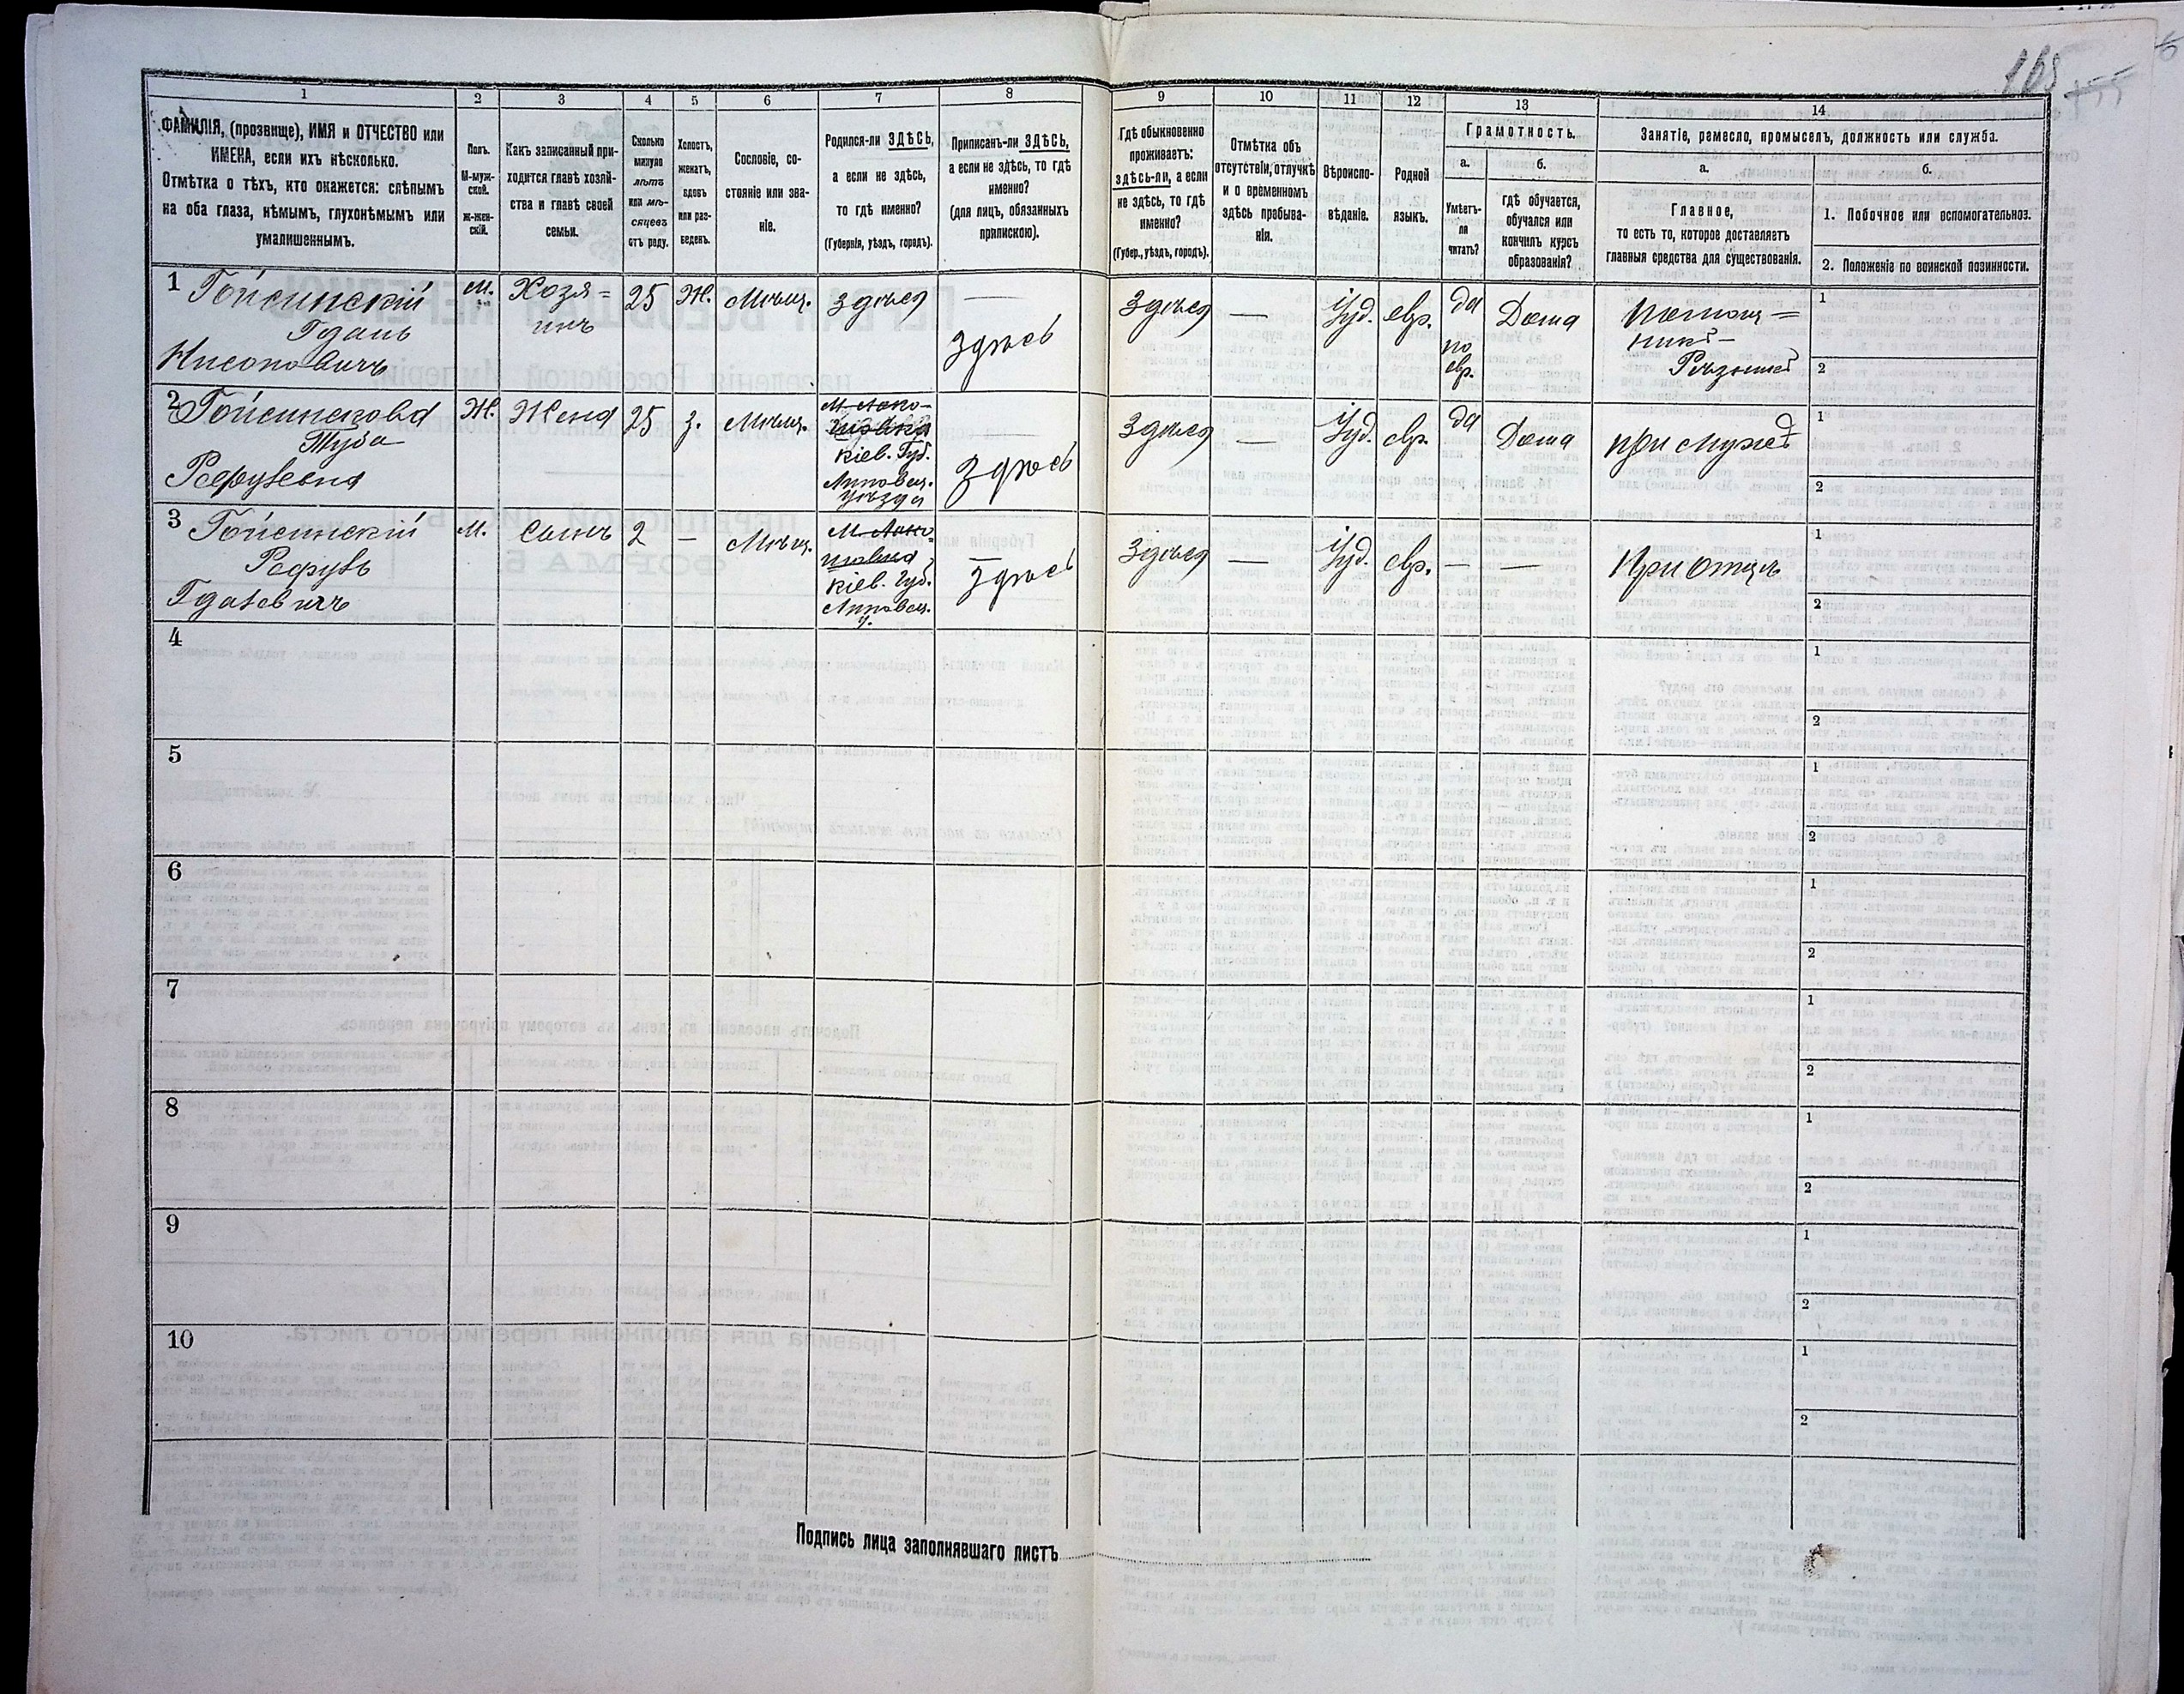 165
155
1
2
3
4
5
6
7
8
9
10
11
12
13
14
ФАМИЛІЯ, (прозвище), ИМЯ и ОТЧЕСТВО или
ИМЕНА, если ихъ нѣсколько.
Отмѣтка о тѣхъ, кто окажется: слѣпымъ
на оба глаза, нѣмымъ, глухонѣмымъ или
умалишеннымъ.
Полъ.
М-муж-
ской.
Ж-жен-
скій.
Какъ записанный при-
ходится главѣ хозяй-
ства и главѣ своей
семьи.
Сколько
минуло
лѣтъ
или мѣ-
сяцевъ
отъ роду.
Холостъ,
женатъ,
вдовъ
или раз-
веденъ.
Сословіе, со-
стояніе или зва-
ніе.
Родился-ли ЗДѢСЬ,
а если не здѣсь,
то гдѣ именно?
(Губернія, уѣздъ, городъ).
Приписанъ-ли ЗДѢСЬ,
а если не здѣсь, то гдѣ
именно?
(для лицъ, обязанныхъ
припискою).
Гдѣ обыкновенно
проживаетъ:
здѣсь-ли, а если
не здѣсь, то гдѣ
именно?
(Губер., уѣздъ, городъ).
Отмѣтка объ
отсутствіи, отлучкѣ
и о временномъ
здѣсь пребыва-
ніи.
Вѣроиспо-
вѣданіе.
Родной
языкъ.
Грамотность.
а.
Умѣетъ-
ли
читать?
б.
гдѣ обучается,
обучался или
кончилъ курсъ
образованія?
Занятіе, ремесло, промыселъ, должность или служба.
а.
Главное,
то есть то, которое доставляетъ
главныя средства для существованія.
б.
1. Побочное или вспомогательное.
2. Положеніе по воинской повинности.
1 Гойсинскій
Гдаль
Нисоновичъ
М.
Хозя=
инъ
25
Ж.
Мѣщ.
здѣсь
—
Здѣсь
Здѣсь
—
Іуд.
евр.
да
по
евр.
Дома
Помощ=
никъ
Рѣзника
1
2
2 Гойсинскова
Туба
Рефулевна
Ж.
Жена
25
З.
Мѣщ.
Кіев. Губ.
Липовец.
Уѣзда
—
Здѣсь
Здѣсь
—
Іуд.
евр.
да
Дома
при мужѣ
1
2
3 Гойсинскій
Рефулъ
Гдалевичъ
М.
Сынъ
2
—
Мѣщ.
Кіев. Губ.
Липовец.
у.
—
Здѣсь
Здѣсь
—
Іуд.
евр.
—
—
При отцѣ
1
2
4
1
2
5
1
2
6
1
2
7
1
2
8
1
2
9
1
2
10
1
2
Подпись лица заполнявшаго листъ